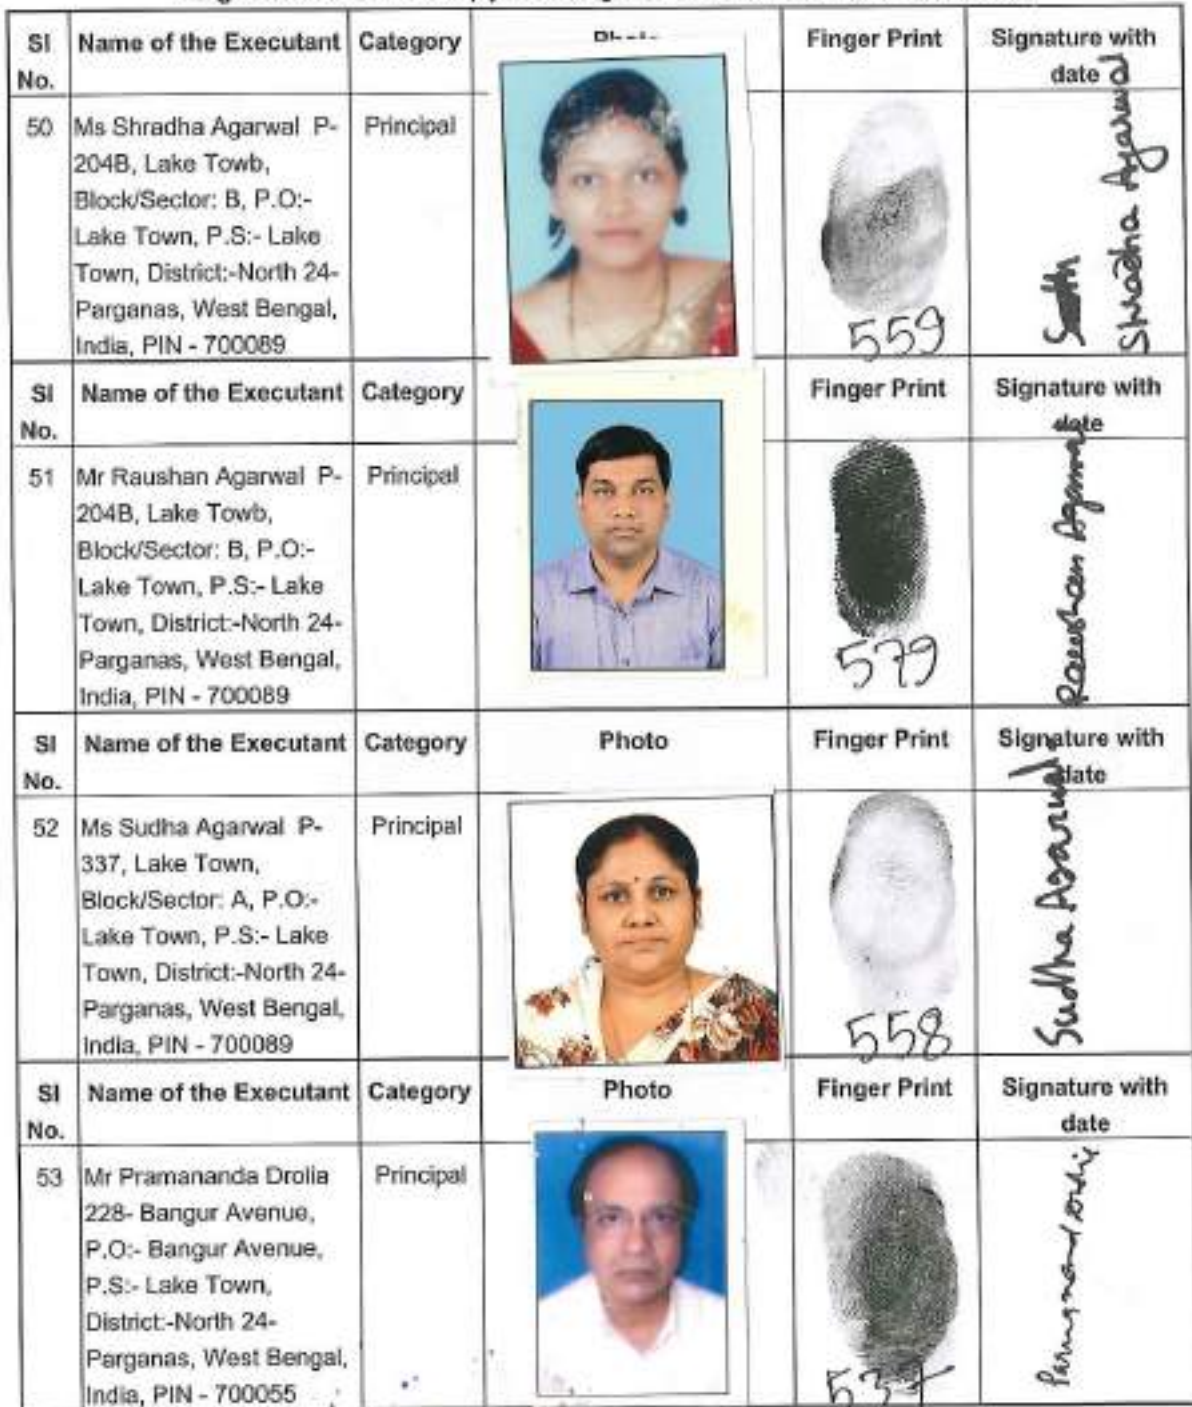 SI No. Name of the Executant Category Finger Print Signature with date
50 Ms Shradha Agarwal P- Principal
204B, Lake Towb,
Block/Sector: B, P.O:-
Lake Town, P.S:- Lake
Town, District:-North 24-
Parganas, West Bengal,
India, PIN - 700089
559
Shradha Agarwal
SI No. Name of the Executant Category Finger Print Signature with date
51 Mr Raushan Agarwal P- Principal
204B, Lake Towb,
Block/Sector: B, P.O:-
Lake Town, P.S:- Lake
Town, District:-North 24-
Parganas, West Bengal,
India, PIN - 700089
579
Raushan Agarwal
SI No. Name of the Executant Category Photo Finger Print Signature with date
52 Ms Sudha Agarwal P- Principal
337, Lake Town,
Block/Sector: A, P.O:-
Lake Town, P.S:- Lake
Town, District:-North 24-
Parganas, West Bengal,
India, PIN - 700089
558
Sudha Agarwal
SI No. Name of the Executant Category Photo Finger Print Signature with date
53 Mr Pramananda Drolia Principal
228- Bangur Avenue,
P.O:- Bangur Avenue,
P.S:- Lake Town,
District:-North 24-
Parganas, West Bengal,
India, PIN - 700055